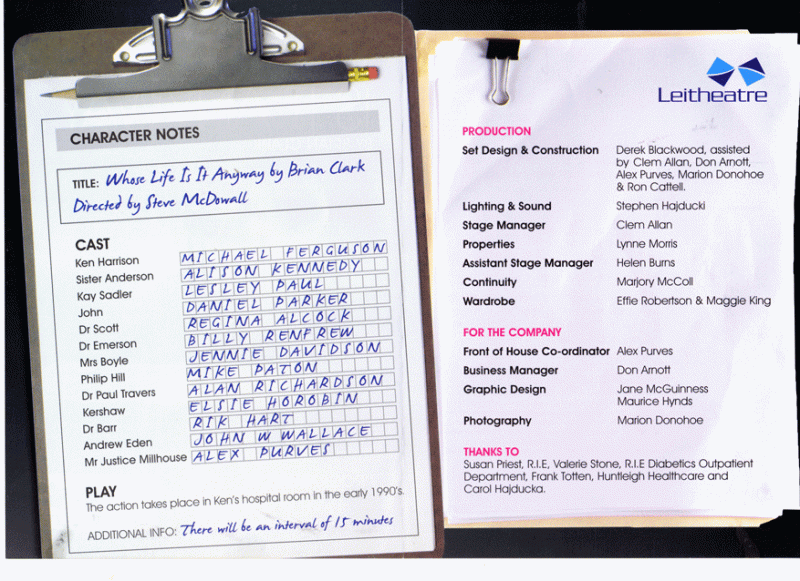 CHARACTER NOTES
TITLE: Whose Life Is It Anyway by Brian Clark
Directed by Steve McDowall
CAST
Ken Harrison MICHAEL FERGUSON
Sister Anderson ALISON KENNEDY
Kay Sadler LESLEY PAUL
John DANIEL PARKER
Dr Scott REGINA ALCOCK
Dr Emerson BILLY RENFREW
Mrs Boyle JENNIE DAVIDSON
Philip Hill MIKE PATON
Dr Paul Travers ALAN RICHARDSON
Kershaw ELSIE HOROBIN
Dr Barr RIK HART
Andrew Eden JOHN W WALLACE
Mr Justice Millhouse ALEX PURVES
PLAY
The action takes place in Ken's hospital room in the early 1990's.
ADDITIONAL INFO: There will be an interval of 15 minutes
Leitheatre
PRODUCTION
Set Design & Construction Derek Blackwood, assisted
by Clem Allan, Don Arnott,
Alex Purves, Marion Donohoe
& Ron Cattell.
Lighting & Sound Stephen Hajducki
Stage Manager Clem Allan
Properties Lynne Morris
Assistant Stage Manager Helen Burns
Continuity Marjory McColl
Wardrobe Effie Robertson & Maggie King
FOR THE COMPANY
Front of House Co-ordinator Alex Purves
Business Manager Don Arnott
Graphic Design Jane McGuinness
Maurice Hynds
Photography Marion Donohoe
THANKS TO
Susan Priest, R.I.E, Valerie Stone, R.I.E Diabetics Outpatient
Department, Frank Totten, Huntleigh Healthcare and
Carol Hajducka.